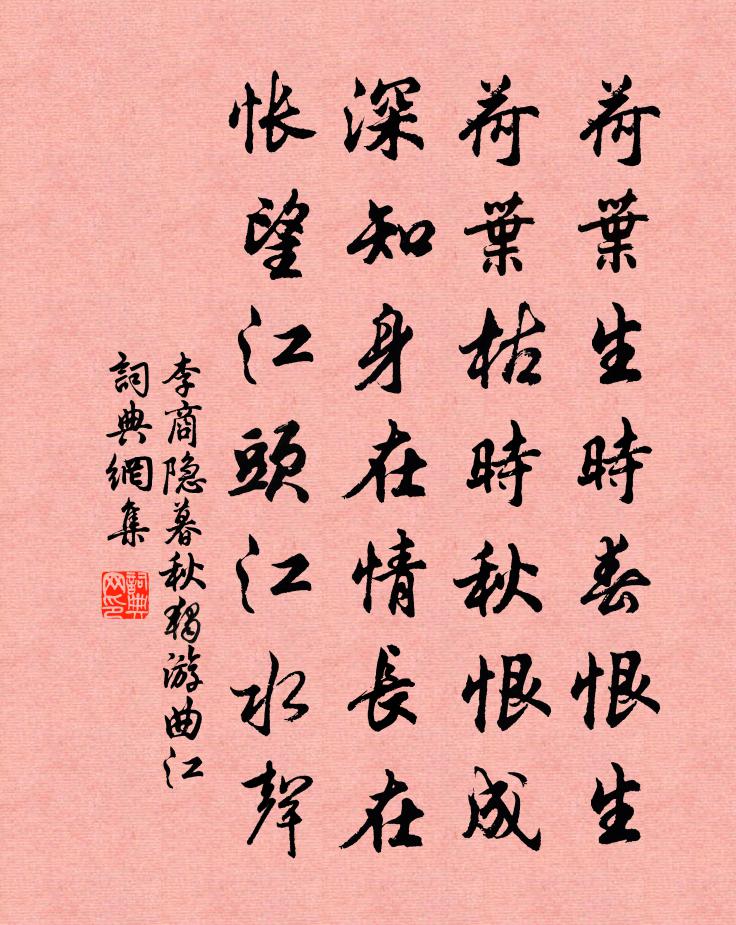 荷葉生時春恨生
荷葉枯時秋恨成
深知身在情長在
悵望江頭江水聲
李商隐暮秋獨游曲江
詞典網集
詞典网印